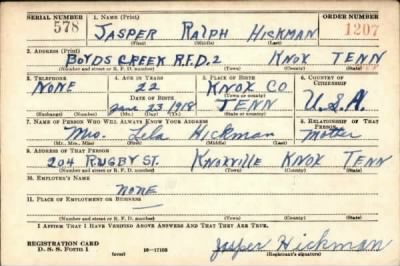 SERIAL NUMBER 1. NAME (Print) ORDER NUMBER
578 JASPER RALPH HICKMAN 1207
(First) (Middle) (Last)
2. ADDRESS (Print)
BOYDS CREEK R.F.D.2 KNOX TENN
(Number and street or R. F. D. number) (Town) (County) (State)
3. TELEPHONE 4. AGE IN YEARS 5. PLACE OF BIRTH 6. COUNTRY OF CITIZENSHIP
NONE 22 KNOX CO
DATE OF BIRTH (Town or county)
June 23 1918 TENN U.S.A.
(Exchange) (Number) (Mo.) (Day) (Yr.) (State or country)
7. NAME OF PERSON WHO WILL ALWAYS KNOW YOUR ADDRESS 8. RELATIONSHIP OF THAT PERSON
Mrs. Lela Hickman Mother
(Mr., Mrs., Miss) (First) (Middle) (Last)
9. ADDRESS OF THAT PERSON
204 RUGBY ST. KNOXVILLE KNOX TENN
(Number and street or R. F. D. number) (Town) (County) (State)
10. EMPLOYER'S NAME
NONE
11. PLACE OF EMPLOYMENT OR BUSINESS
(Number and street or R. F. D. number) (Town) (County) (State)
I AFFIRM THAT I HAVE VERIFIED ABOVE ANSWERS AND THAT THEY ARE TRUE.
REGISTRATION CARD Jasper Hickman
D. S. S. FORM 1 (over) 16—17105 (Registrant's signature)